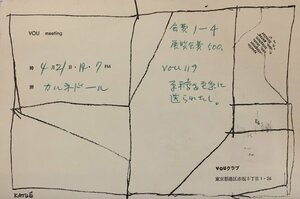 VOU meeting
時 4月21日・12・7 PM
所 カルネドール
会費 1-4
展覧会費 500.
VOU 119
原稿至急に
送られたし。
VOUクラブ
東京都港区赤坂5丁目1-26
KATUÉ